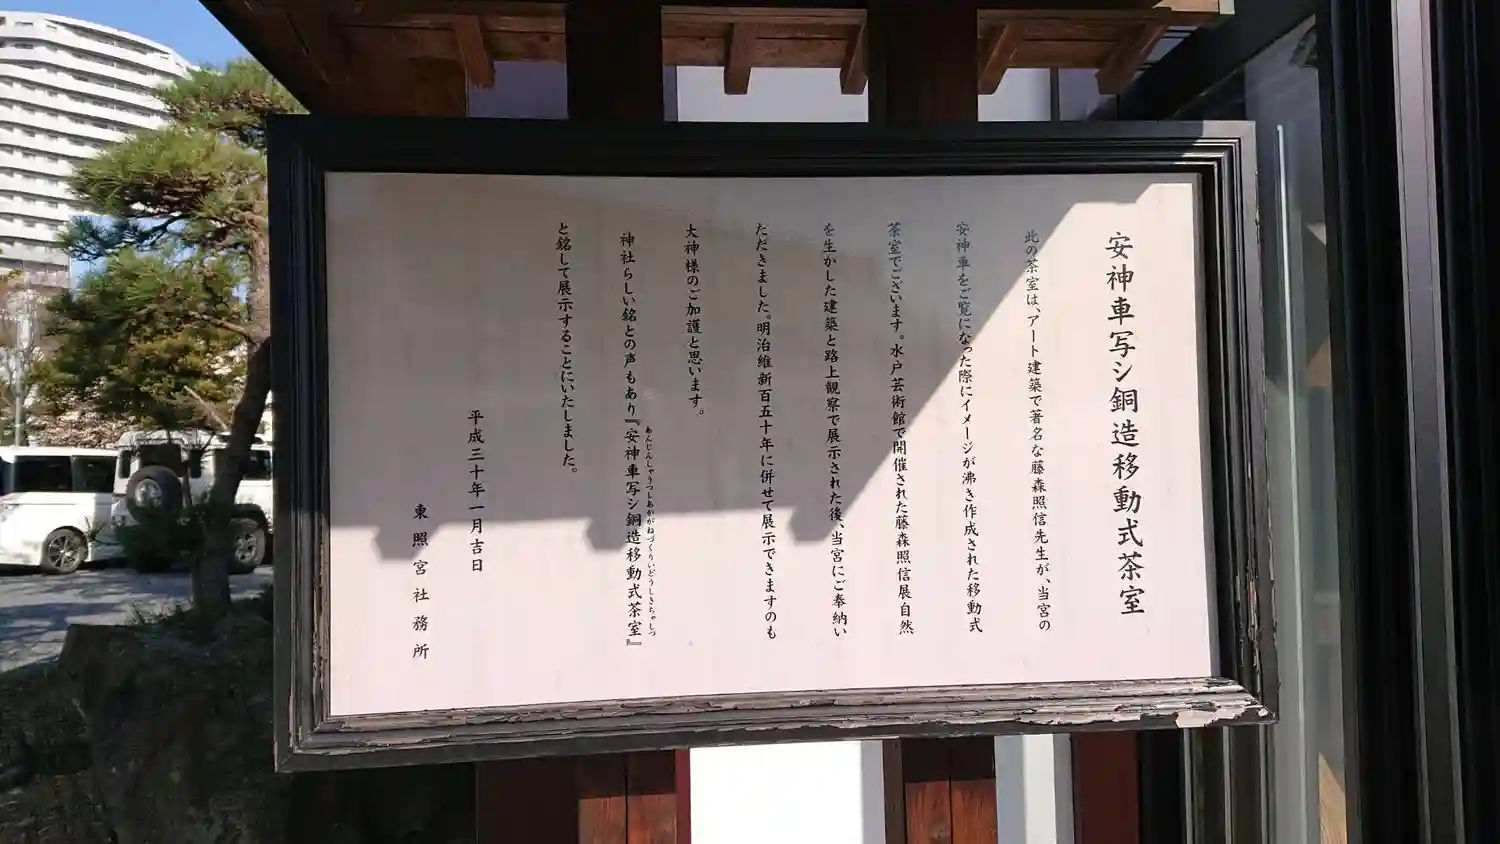 安神車写シ銅造移動式茶室
此の茶室は、アート建築で著名な藤森照信先生が、当宮の
安神車をご覧になった際にイメージが沸き作成された移動式
茶室でございます。水戸芸術館で開催された藤森照信展自然
を生かした建築と路上観察で展示された後、当宮にご奉納い
ただきました。明治維新百五十年に併せて展示できますのも
大神様のご加護と思います。
神社らしい銘との声もあり『安神車写シ銅造移動式茶室』
あんじんしゃうつしあかがねづくりいどうしきちゃしつ
と銘して展示することにいたしました。
平成三十年一月吉日
東照宮社務所